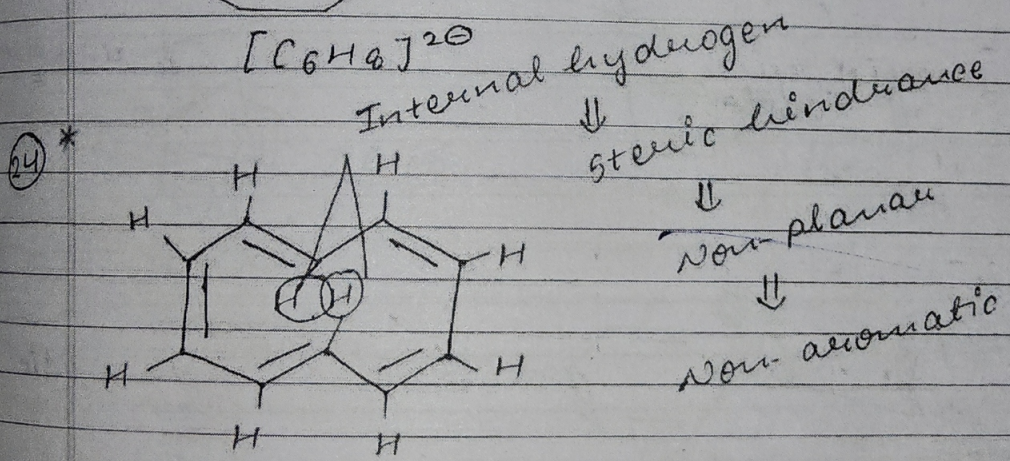 [C6H8]2⊖
Internal hydrogen
⇓
Steric hindrance
⇓
Non-planar
⇓
Non-aromatic
24 *
H H
H H
H H
H H
H H